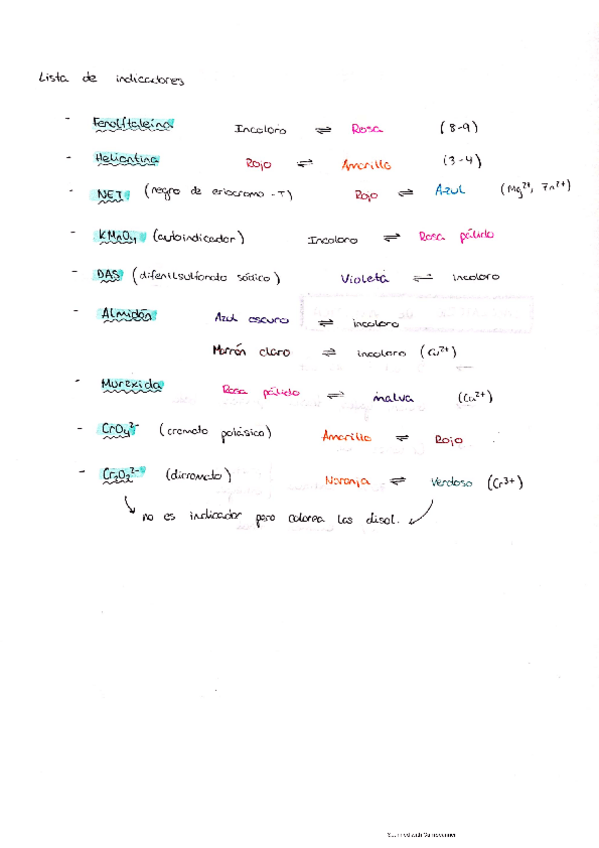 Lista de indicadores
- Fenolftaleína Incoloro ⇌ Rosa (8-9)
- Heliantina Rojo ⇌ Amarillo (3-4)
- NET (negro de eriocromo -T) Rojo ⇌ Azul (Mg²⁺, Zn²⁺)
- KMnO₄ (autoindicador) Incoloro ⇌ Rosa pálido
- DAS (difenilsulfonato sódico) Violeta ⇌ incoloro
- Almidón Azul oscuro ⇌ incoloro
Marrón claro ⇌ incoloro (Cu²⁺)
- Murexida Rosa pálido ⇌ malva (Cu²⁺)
- CrO₄²⁻ (cromato potásico) Amarillo ⇌ Rojo
- Cr₂O₇²⁻ (dicromato) Naranja ⇌ Verdoso (Cr³⁺)
no es indicador pero colorea las disol.